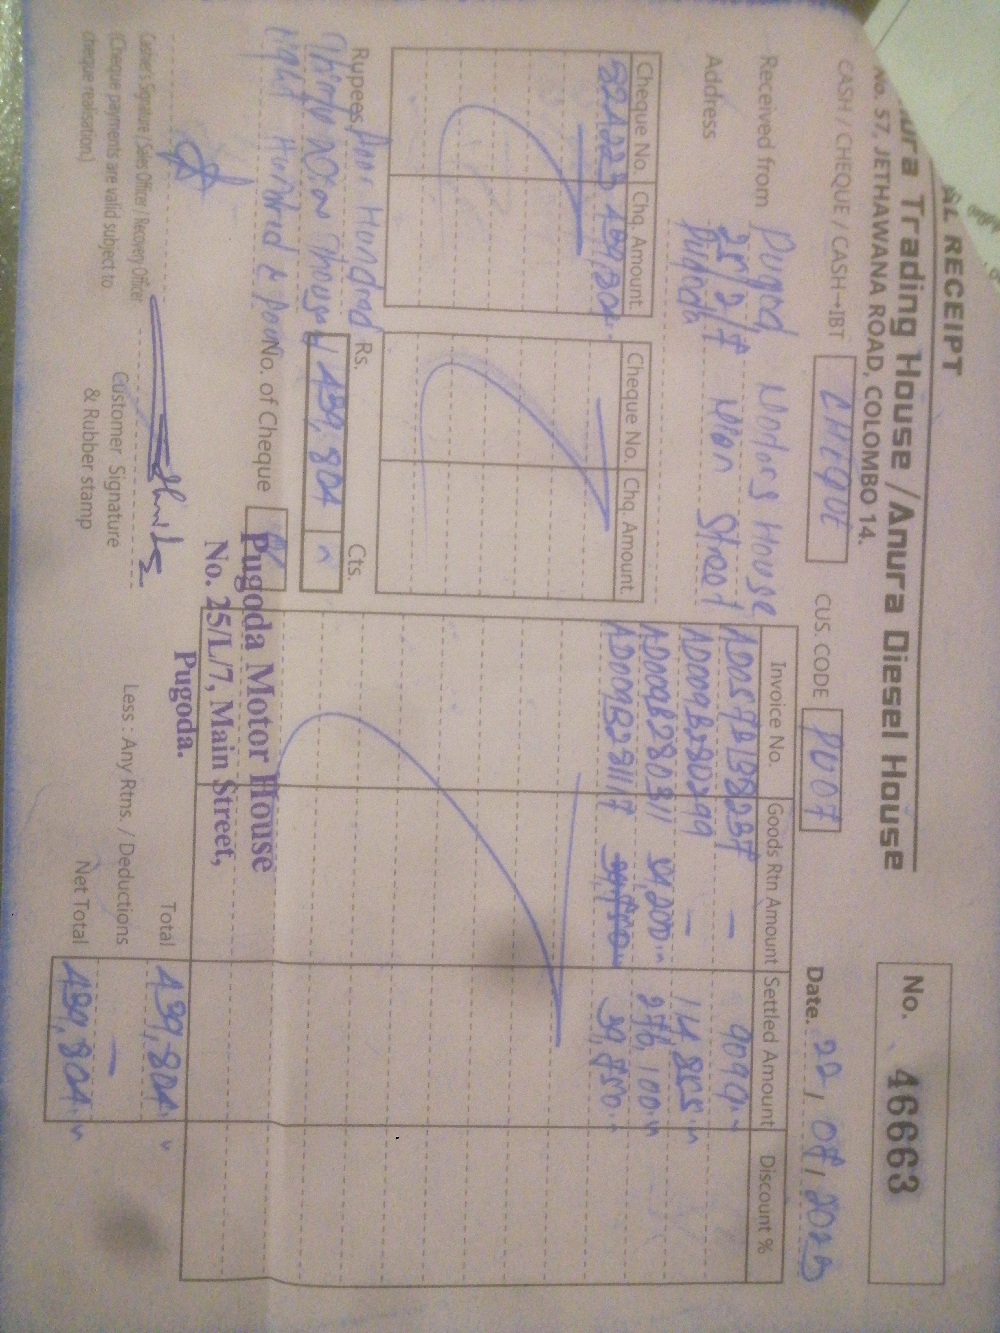 AL RECEIPT
ura Trading House / Anura Diesel House
No. 57, JETHAWANA ROAD, COLOMBO 14.
No. 46663
CASH / CHEQUE / CASH→IBT CHEQUE CUS. CODE PU07
Date. 22 / 07 / 2025
Received from Pugoda Motors House
Address 25/2/7 Main Street
Cheque No. Chq. Amount Cheque No. Chq. Amount
439,804
Invoice No. Goods Rtn Amount Settled Amount Discount %
AD057B198237 —
AD009B280299 —
AD009B280311
AD009B281117 39,850
Rupees Four Hundred Rs. Cts.
Thirty Nine Thousand 439,804
Eight Hundred & Four No. of Cheque
Pugoda Motor House
No. 25/L/7, Main Street,
Pugoda.
Total 439,804
Less : Any Rtns. / Deductions —
Net Total 439,804
Cashier's Signature / Sales Officer / Recovery Officer
(Cheque payments are valid subject to
cheque realisation)
Customer Signature
& Rubber stamp